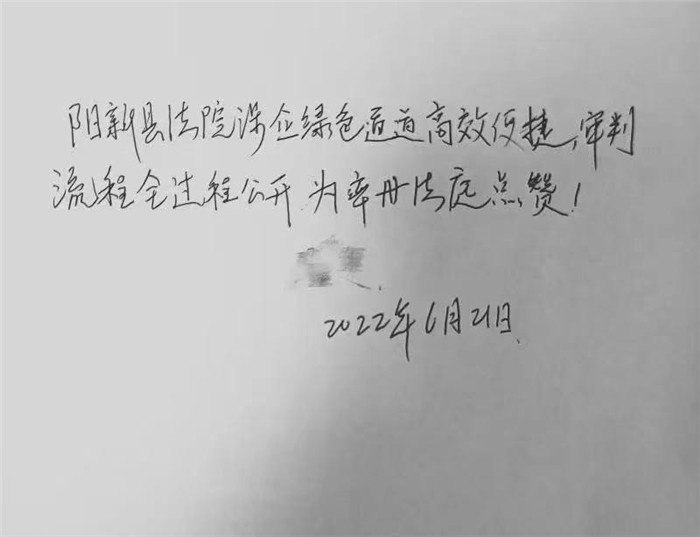 阳新县法院涉企绿色通道高效便捷,审判
流程全过程公开 为率法庭点赞!
2022年6月21日.